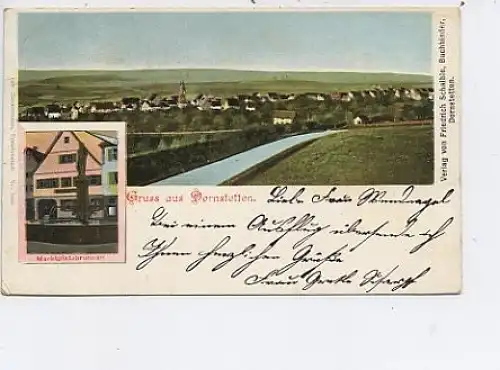 Verlag von Friedrich Schaible, Buchbinder,
Dornstetten.
Gruss aus Dornstetten.
Marktplatzbrunnen
Liebe Frau Wendnagel
Bei einem Ausflug übersende ich
Ihnen herzlichen Grüße
Frau Grethe Scharpf